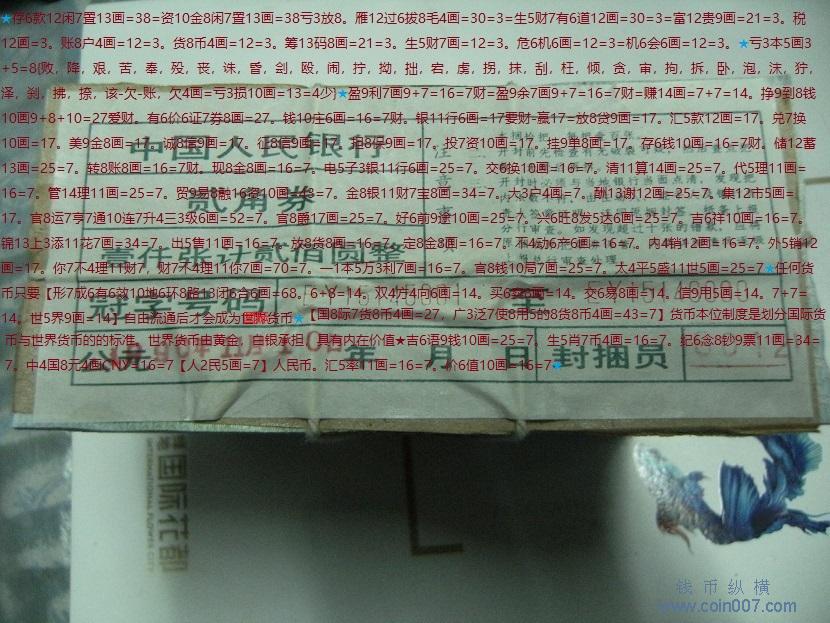 ★存6款12闲7置13画=38=资10金8闲7置13画=38亏3放8。雁12过6拔8毛4画=30=3=生5财7有6道12画=30=3=富12贵9画=21=3。税
12画=3。账8户4画=12=3。货8币4画=12=3。筹13码8画=21=3。生5财7画=12=3。危6机6画=12=3=机6会6画=12=3。★亏3本5画3
+5=8{败，降，艰，苦，奉，殁，丧，诛，昏，剑，殴，闹，拧，拗，拙，宕，虏，拐，抹，刮，枉，倾，贪，审，拘，拆，卧，泡，沫，狞，
泽，剎，拂，捺，该-欠-账，欠4画=亏3损10画=13=4少}★盈9利7画9+7=16=7财=盈9余7画9+7=16=7财=赚14画=7+7=14。挣9到8钱
10画9+8+10=27爱财。有6价6证7券8画=27。钱10庄6画=16=7财。银11行6画=17要财-赢17=放8贷9画=17。汇5款12画=17。兑7换
10画=17。美9金8画=17。诚8信9画=17。征8信9画=17。担8保9画=17。投7资10画=17。挂9单8画=17。存6钱10画=16=7财。储12蓄
13画=25=7。转8账8画=16=7财。现8金8画=16=7。电5子3银11行6画=25=7。交6换10画=16=7。清11算14画=25=7。代5理11画
=16=7。管14理11画=25=7。贸9易8融16资10画=43=7。金8银11财7宝8画=34=7。大3王4画=7。邮13谢12画=25=7。集12市5画=
17。官8运7亨7通10连7升4三3级6画=52=7。官8爵17画=25=7。好6前9途10画=25=7。兴6旺8发5达6画=25=7。吉6祥10画=16=7。
锦13上3添11花7画=34=7。出5售11画=16=7。放8货8画=16=7。定8金8画=16=7。不4动6产6画=16=7。内4销12画=16=7。外5销12
画=17。你7不4理11财7，财7不4理11你7画=70=7。一1本5万3利7画=16=7。官8钱10局7画=25=7。太4平5盛11世5画=25=7★任何货
币只要【形7成6有6效10地6环8路13闭6合6画=68。6+8=14。双4方4向6画=14。买6卖8画=14。交6易8画=14。信9用5画=14。7+7=
14。世5界9画=14】自由流通后才会成为世界货币★【国8际7货8币4画=27，广3泛7使8用5的8货8币4画=43=7】货币本位制度是划分国际货
币与世界货币的的标准。世界货币由黄金、白银承担，具有内在价值★吉6语9钱10画=25=7。生5肖7币4画=16=7。纪6念8钞9票11画=34=
7。中4国8元4画CNY=16=7【人2民5画=7】人民币。汇5率11画=16=7。价6值10画=16=7★
中国人民银行
贰角券
壹仟张计贰佰圆整
冠字号码
公元1990年11月10日
年 月 日
封捆员
国际花都
钱币纵横
www.coin007.com